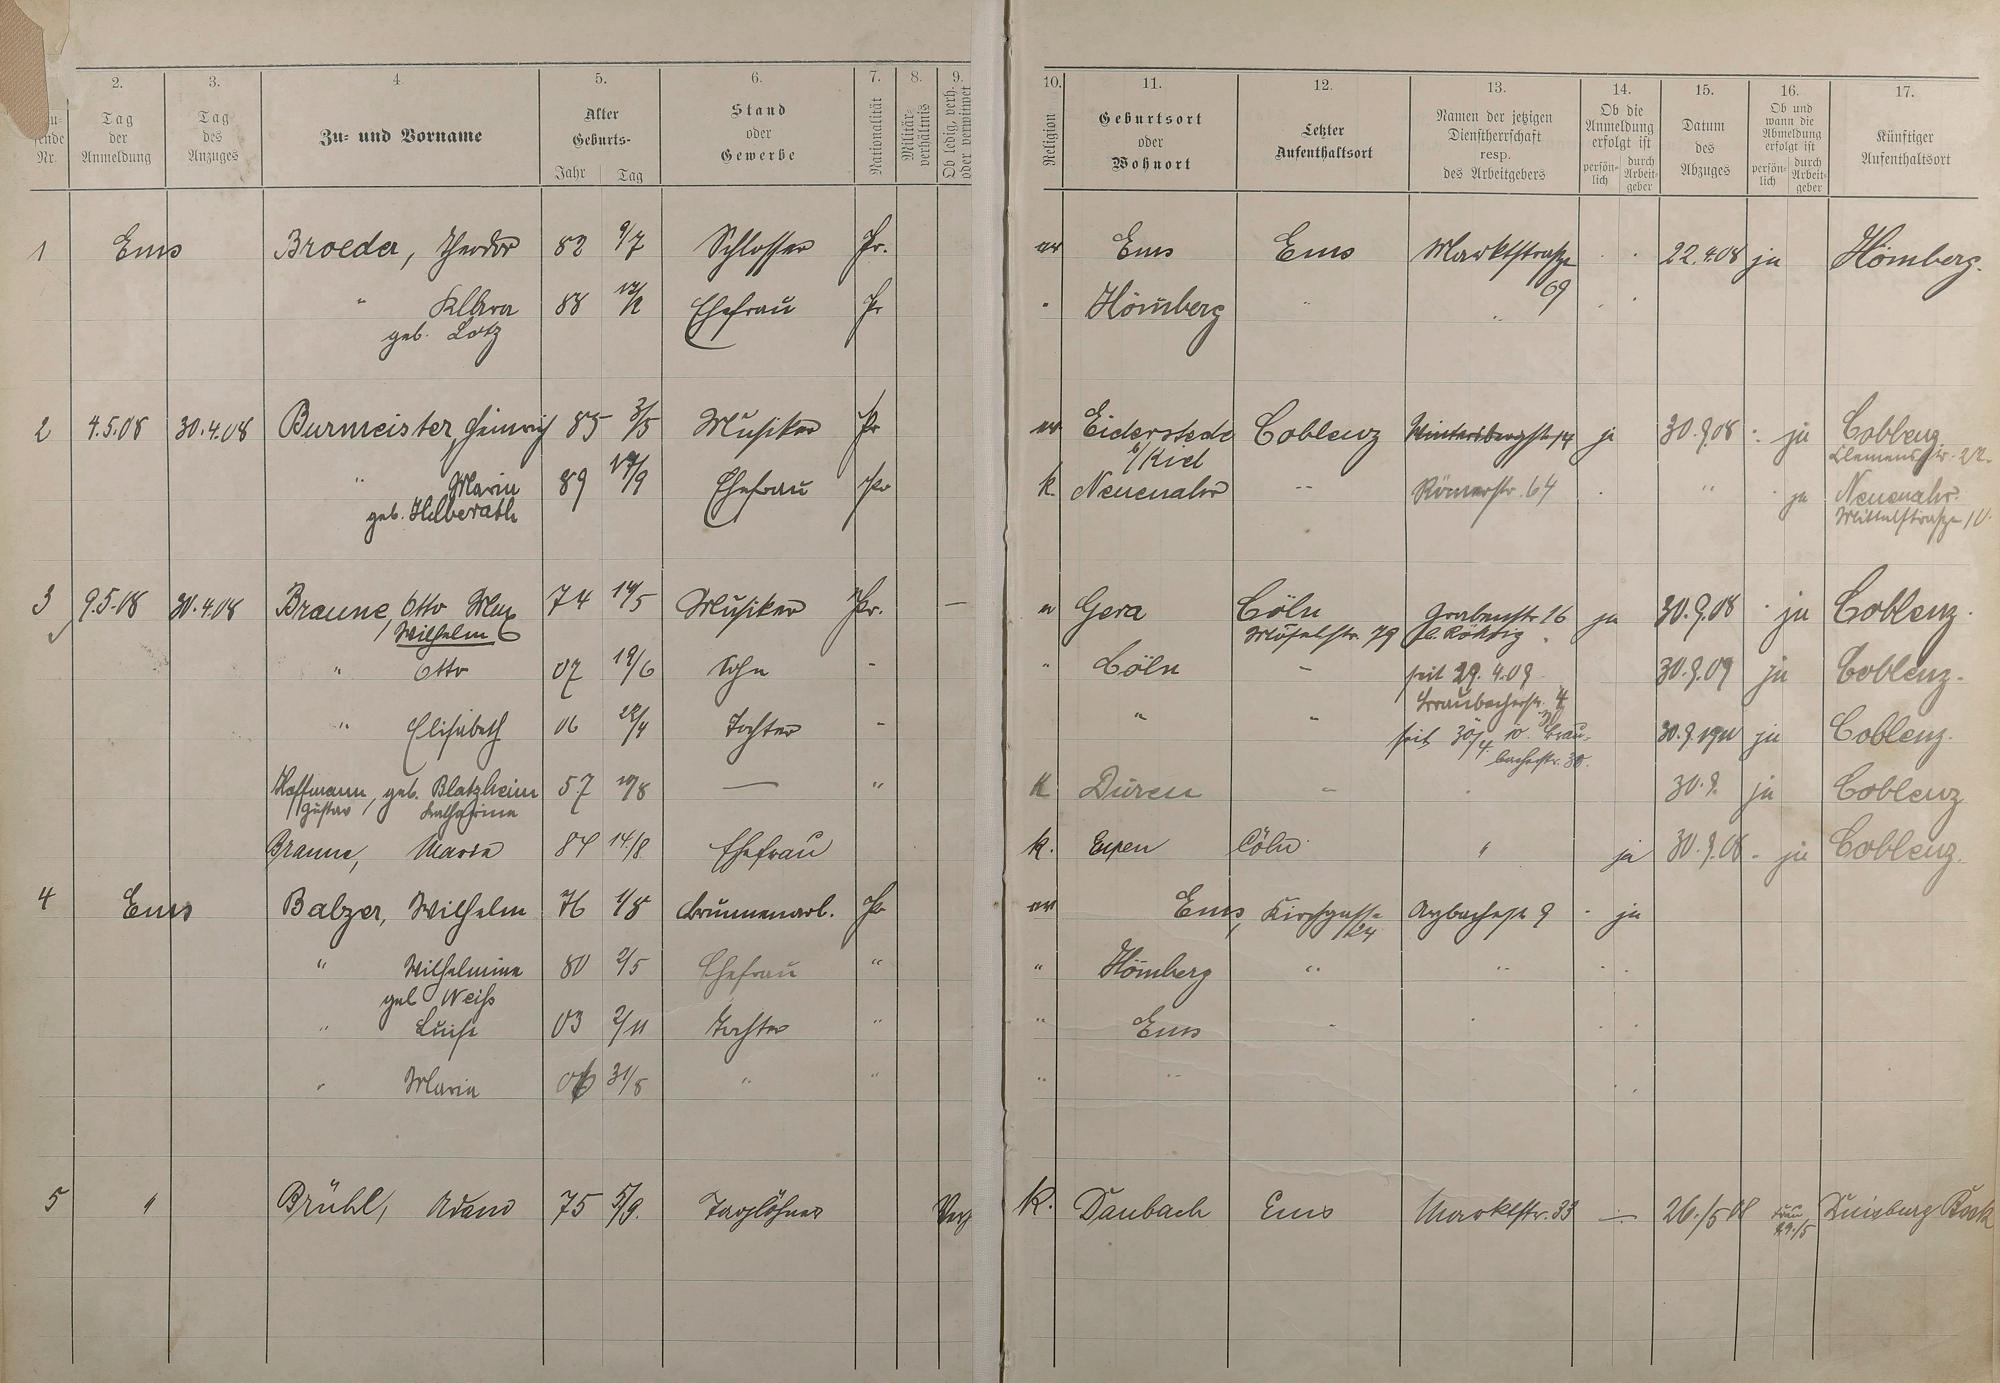 2. 3. 4. 5. 6. 7. 8. 9. 10. 11. 12. 13. 14. 15. 16. 17.
Nr.
Tag der Anmeldung
Tag des Anzuges
Zu- und Vorname
Alter Geburts- Jahr Tag
Stand oder Gewerbe
Nationalität
Militär-verhältnis
Ob ledig, verh. oder verwitwet
Religion
Geburtsort oder Wohnort
Letzter Aufenthaltsort
Namen der jetzigen Dienstherrschaft resp. des Arbeitgebers
Ob die Anmeldung erfolgt ist persön-lich durch Arbeit-geber
Datum des Abzuges
Ob und wann die Abmeldung erfolgt ist persön-lich durch Arbeit-geber
Künftiger Aufenthaltsort
1 Ems Broeder, Theodor 82 9/7 Schlosser Pr. ev Ems Ems Marktstraße 69 22.4.08 ja Hömberg.
" Klara 88 Ehefrau Pr " Hömberg "
geb. Lotz
2 4.5.08 30.4.08 Burmeister, Heinrich 85 3/5 Musiker Pr ev Eiderstede b/Kiel Coblenz Wintersbergstr 14 ja 30.9.08 ja Coblenz Clemensstr. 22.
" Maria 89 19/9 Ehefrau Pr k. Neuenahr " Römerstr. 64 " ja Neuenahr. Mittelstraße 10.
geb. Helberath
3 9.5.08 30.4.08 Braune, Otto Max 74 14/5 Musiker Pr. — Gera Cöln Grabenstr 16 ja 30.9.08 ja Coblenz.
Wilhelm Moselstr. 79
" Otto 07 19/6 Sohn - " Cöln - seit 29.4.09 30.9.09 ja Coblenz.
Braubacherstr. 4
" Elisabeth 06 22/4 Tochter - " " seit 30/4. 10. Brau- 30.9.1910 ja Coblenz.
bacherstr. 30.
Hoffmann, geb. Blatzheim 57 — " K Düren " 30.9. ja Coblenz
Gustav Katharina
Braune, Maria 84 14/8 Ehefrau k. Eupen Cöln " ja 30.9.08. ja Coblenz.
4 Ems Balzer, Wilhelm 76 1/8 Brunnenarb. Pr ev Ems, Kirchgasse 24 Arzbacherstr 9 ja
" Wilhelmine 80 2/5 Ehefrau " " Hömberg " "
geb Weiß
" Luise 03 2/11 Tochter " " Ems "
" Maria 06 31/8 " " " "
5 " Brühl, Adam 75 5/9. Taglöhner k. Daubach Ems Marktstr. 33 — 26./5 08 Frau 29./5 Duisburg